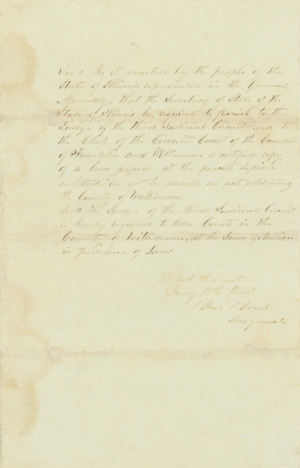 Sec 1 Be it enacted by the people of the
State of Illinois represented in the General
Assembly, That the Secretary of State of the
State of Illinois be required to furnish to the
Judge of the Third Judicial Circuit and to
the Clerk of the Circuit Court of the Counties
of Franklin and Williamson a certified copy
of a law passed at the present session
entitled "An act to amend an act establishing
the County of Williamson
Sec 2 The Judge of the Third Judicial Circuit
is hereby required to hold Courts in the
County of Williamson, at the Town of Marion
in pursuance of Law
Senate
Secy Senate